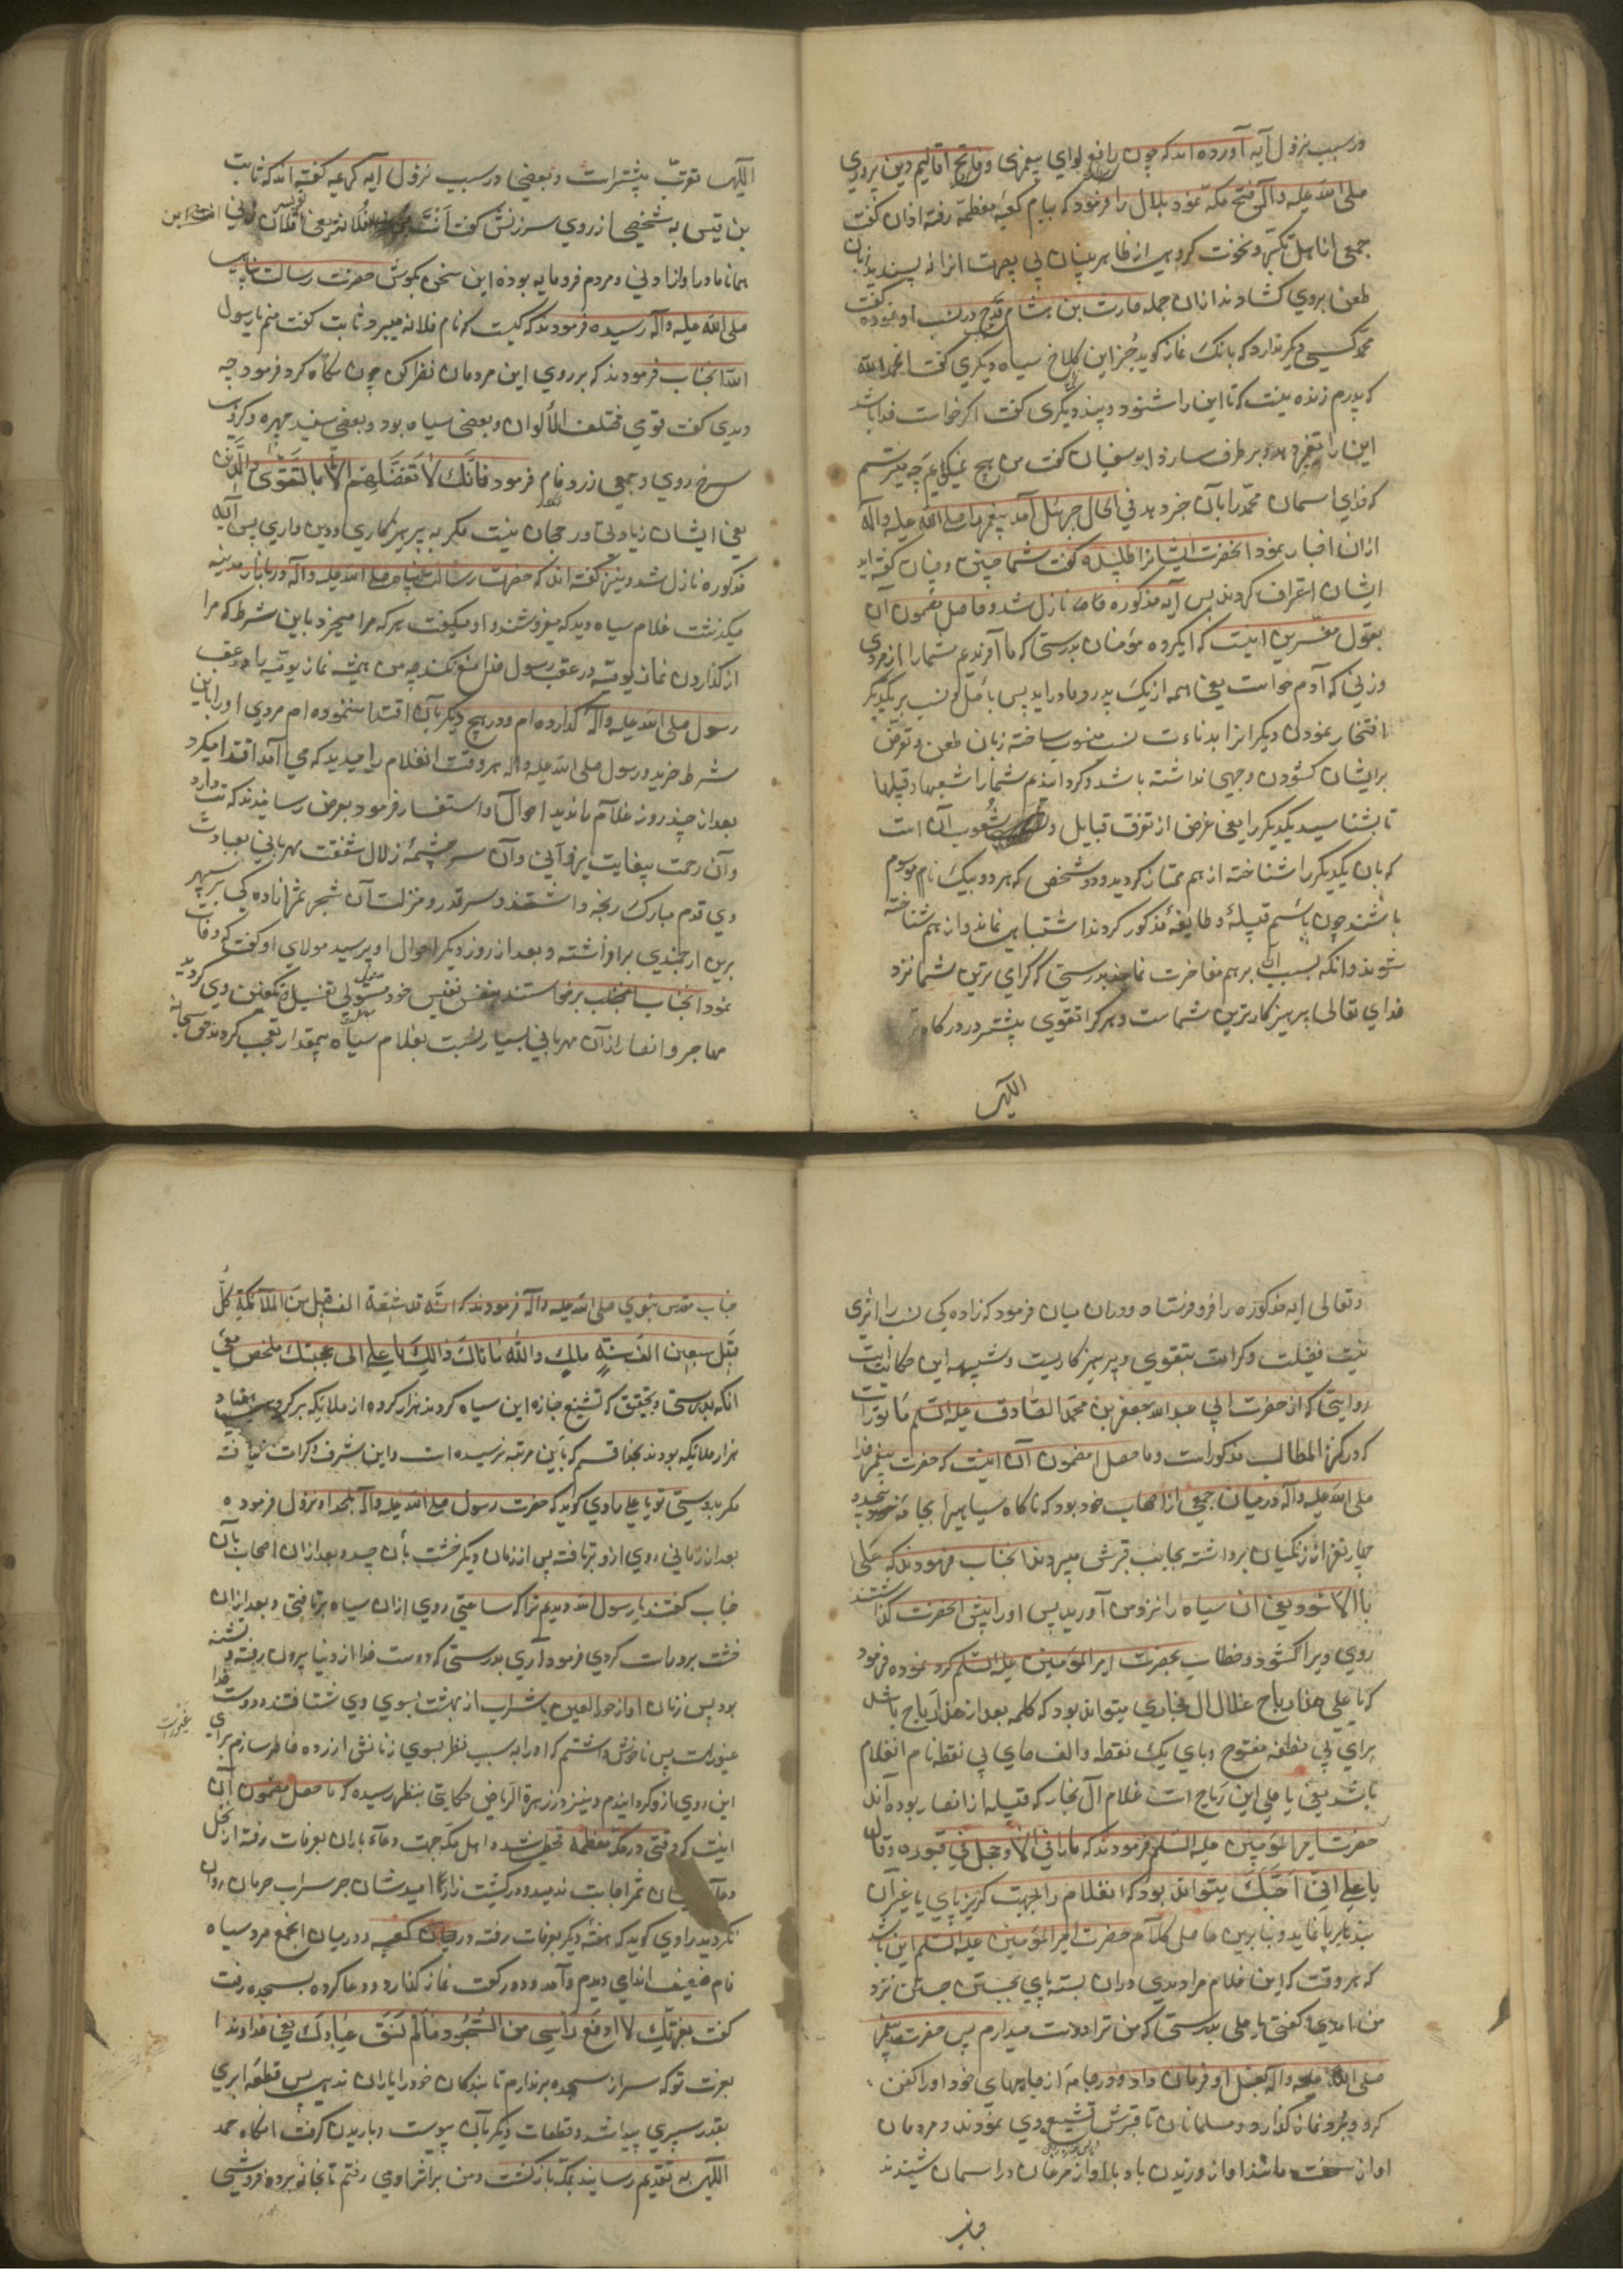 و سبب نزول آیه آورده اند که چون رافع لوای پیغمبری و فاتح اقالیم دین پروری
صلی الله علیه وآله فتح مکه نمود بلال را فرمود که ببام کعبه معظمه رفته اذان گفت
جمعی از اهل تکبر و نخوت گروهی از ظاهر بینان بی بصیرت انرا نه پسندیده زبان
طعن بروی گشادند ازان جمله حارث بن هشام قدح در نسب او نموده گفت
محمد کسی دیگر ندارد که بانگ نماز گوید جز این کلاغ سیاه دیگری گفت الحمد لله
که پدرم زنده نیست که تا این را شنود و بیند دیگری گفت اگر خواست خدا باشد
این را تغیر دهد و بر طرف سازد ابوسفیان گفت من هیچ نمیگویم چه میترسم
که خدای اسمان محمد را بآن خبر دهد فی الحال جبرئیل آمد پیغمبر را صلی الله علیه وآله
ازان اخبار نمود انحضرت ایشانرا طلبیده گفت شما چنین و چنان گفته اید
ایشان اعتراف کردند پس آیه مذکوره نازل شد و حاصل مضمون آن
بقول مفسرین اینست که ایگروه مؤمنان بدرستی که ما آفریدیم شما را از مردی
وزنی که آدم حواست یعنی همه از یک پدر و مادراید پس باصل و نسب بر یکدیگر
افتخار نمودن و دیگرانرا بدناءت نسب منسوب ساخته زبان طعن و تعرض
بر ایشان گشودن وجهی نداشته باشد و گردانیدیم شما را شعبها و قبیلها
تا بشناسید یکدیگر را یعنی غرض از تفرق قبایل و شعوب آن است
که بان یکدیگر را شناخته از هم ممتاز گردید و دو شخص که هر دو بیک نام موسوم
باشند چون باسم قبیله و طایفه مذکور گردند اشتباهی نماند و از هم شناخته
شوند و انکه بسبب آن بر هم مفاخرت نمایند بدرستی که گرامی ترین شما نزد
خدای تعالی پرهیزکارترین شماست و هر کرا تقوی بیشتر در درگاه
الآلهی
الآلهی تقرب بیشتر است و بعضی در سبب نزول آیه کریمه گفته اند که ثابت
بن قیس به شخصی از روی سرزنش گفت أنت ابن فلانة یعنی تو پسر فلان زنی
همانا مادر او از ادنی و مردم فرومایه بوده این سخن بگوش حضرت رسالت پناهی
صلی الله علیه وآله رسیده فرمودند که کیست که نام فلانه میبرد ثابت گفت منم یا رسول
الله انجناب فرمودند که بر روی این مردمان نظر کن چون نگاه کرد فرمود چه
دیدی گفت قومی مختلف الألوان و بعضی سیاه بود و بعضی سفید چهره و گروهی
سرخ روی و جمعی زرد فام فرمود فَإِنَّكَ لَا تَفَضَّلَهُم إِلَّا بِالتَّقْوَى وَالدِّین
یعنی ایشان زیادتی و رجحان نیست مگر به پرهیزکاری و دین داری پس آیه
مذکوره نازل شد و نیز گفته اند که حضرت رسالت پناه صلی الله علیه وآله در بازار مدینه
میگذشت غلام سیاه دید که میفروشند و او میگفت هر که مرا میخرد باین شرط که مرا
از گذاردن نماز یومیه در عقب رسول خدا منع نکند چه من همیشه نماز یومیه را در عقب
رسول صلی الله علیه وآله گذارده ام و در هیچ دیگر بآن اقتدا ننموده ام مردی او را باین
شرط خرید و رسول صلی الله علیه وآله هر وقت انغلام را میدید که می آمد اقتدا میکرد
بعد از چند روز غلام را ندید احوال او استفسار فرمود بعرض رسانیدند که تب دارد
و آن رحمت بیغایت یزدانی و آن سرچشمه زلال شفقت مهربانی بعیادت
وی قدم مبارک رنجه داشتند و سر قدر و منزلت آن شجر ثمر ازادگی بر سپهر
برین ارجمندی برافراشته و بعد از روز دیگر احوال او پرسید مولای او گفت که وفات
نمود انجناب برخواستند بنفس نفیس خود متولی تغسیل و تکفین وی گردید
مهاجر و انصار ازان مهربانی بسیار نسبت بغلام سیاه بیمقدار تعجب کردند حق سبحانه
وتعالی ایه مذکوره را فرو فرستاد و دران میان فرمود که زادگی نسب را اثری
نیست فضیلت و کرامت بتقوی و پرهیزکاریست و شبیه این حکایت
روایتی که از حضرت ابی عبدالله جعفر بن محمد الصادق علیه السلم مأثورات
که در کنز المطالب مذکورات و ماحصل مضمون آن اینست که حضرت پیغمبر خدا
صلی الله علیه وآله در میان جمعی از اصحاب خود بود که ناگاه سیاهیرا بجامه پیچیده
چهار نفر از زنگیان برداشته بجانب قبرش میبردند انجناب فرمودند که علی
بالاسود یعنی ان سیاه را نزد من آورید پس او را پیش انحضرت گذاشتند
روی ویرا گشود و خطاب بحضرت امیر المؤمنین علیه السلم کرد نموده فرمود
که یا علی هذا رباح غلال ال نجاری میتواند بود که کلمه بعد از هذا رباح باشد
برای بی نقطه مفتوح و بای یک نقطه والف حای بی نقطه نام انغلام
باشد یعنی یا علی این رباح است غلام آل نجار که قبیله از انصار بوده اند
حضرت امیر المؤمنین علیه السلم فرمودند که ما رانی الا وحجل فی قیوده وقال
یا علی انی احبك میتواند بود که انغلام را بجهت گریزپای یا غیر آن
بند بر پا نهاده و بنابرین حاصل کلام حضرت امیر المؤمنین علیه السلم این باشد
که هر وقت که این غلام مرا دیدی دران بسته پای بجستن جستن نزد
من امدی و گفتی یا علی بدرستی که من ترا دوست میدارم پس حضرت پیغمبر
صلی الله علیه وآله بغسل او فرمان داد و در جامه از جامهای خود او را کفن
کرد و برو نماز گذارد و مسلمانان تا قبرش تشییع وی نمودند و مردمان
اواز سخت مانند اواز وزیدن باد یا اواز مرغان در اسمان شنیدند
جناب
جناب مقدس نبوی صلی الله علیه وآله فرمودند که انه قد شیعه الف قبیل من الملآئکة كل
قبیل سبعین الف ملك والله ما نالك ذالك یا علی الی محبتك ملخص معنی
انکه بدرستی و تحقیق که تشییع جنازه این سیاه کردند هزار گروه از ملایکه هر گروه هفتاد
هزار ملایکه بودند بخدا قسم که باین مرتبه نرسیده است و این شرف و کرامت نیافته
مگر بدوستی تو یا علی راوی گوید که حضرت رسول صلی الله علیه وآله بلحد او نزول فرموده
بعد از زمانی روی ازو برتافته پس از زمان دیگر خشت بآن چید و بعد ازان اصحاب بآن
جناب گفتند یا رسول الله دیدیم ترا که ساعتی روی ازان سیاه برتافتی و بعد ازان
خشت برو راست کردی فرمود آری بدرستی که دوست خدا از دنیا بیرون رفت و تشنه
بود پس زنان او از حور العین با شراب از بهشت بسوی وی شتافتند و دوست خدا
غیورست پس ناخوش داشتم که او را به سبب نظر بسوی زنانش ازرده خاطر سازم برای
غیورست
این روی ازو گردانیدم و نیز در زهرة الریاض حکایتی بنظر رسیده که ماحصل مضمون آن
اینست که وقتی در مکه معظمه قحطی شد و اهل مکه جهت دعاء باران بعرفات رفته از نخل
دعاء ایشان ثمر اجابت ندمید و در کشت زارها امیدشان جز سراب حرمان روان
نگردید راوی گوید که هفته دیگر بعرفات رفته در میان انجمع مرد سیاه
فام ضعیف اندامی دیدم وآمد و دو رکعت نماز گذارد و دعا کرده بسجده رفت
گفت بعزتك لا ارفع رأسی من السجود ما لم تسق عبادك یعنی خداوندا
بعزت تو که سر از سجده برندارم تا بندگان خود را باران ندهی پس قطعه ابری
بقدر سپری پیدا شد و قطعات دیگر بآن پیوست و باریدن گرفت انگاه حمد
الآلهی به تقدیم رسانید بمکه بازگشت و من بر اثر او می رفتم تا بخانه برده فروشی